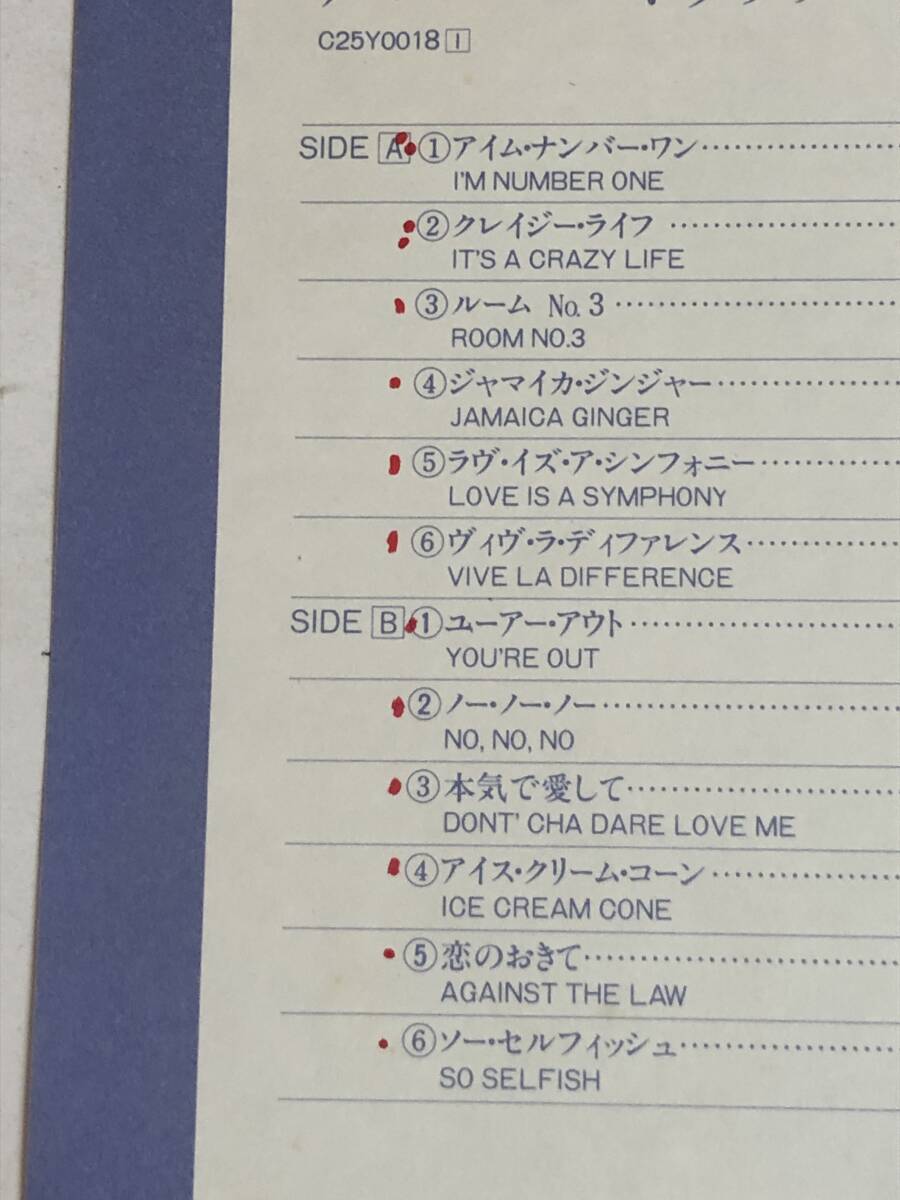 C25Y0018 I
SIDE A ①アイム・ナンバー・ワン
I'M NUMBER ONE
②クレイジー・ライフ
IT'S A CRAZY LIFE
③ルーム No. 3
ROOM NO.3
④ジャマイカ・ジンジャー
JAMAICA GINGER
⑤ラヴ・イズ・ア・シンフォニー
LOVE IS A SYMPHONY
⑥ヴィヴ・ラ・ディファレンス
VIVE LA DIFFERENCE
SIDE B ①ユーアー・アウト
YOU'RE OUT
②ノー・ノー・ノー
NO, NO, NO
③本気で愛して
DONT' CHA DARE LOVE ME
④アイス・クリーム・コーン
ICE CREAM CONE
⑤恋のおきて
AGAINST THE LAW
⑥ソー・セルフィッシュ
SO SELFISH